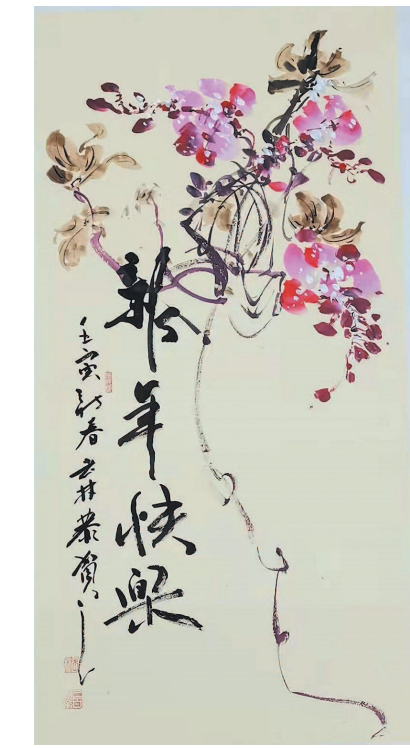 新年快樂
壬寅新春 森林恭賀